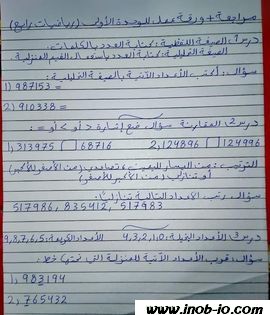 مراجعة + ورقة عمل للوحدة الأولى (رياضيات رابع)
درس 1: الصيغة اللفظية: كتابة العدد بالكلمات.
الصيغة التحليلية: كتابة العدد باستعمال القيم المنزلية.
سؤال: أكتب الأعداد الآتية بالصيغة التحليلية:
1) 987153 =
2) 910338 =
درس 2: المقارنة سؤال: ضع إشارة > أو < أو =:
1) 313975 68716 2) 124896 124996
الترتيب: من اليسار لليمين، تصاعدي (من الأصغر للأكبر)
أو تنازلي (من الأكبر للأصغر)
سؤال: رتب الأعداد التالية تنازليًا:
517986, 835412, 517983
درس 3: الأعداد البخيلة: 4,3,2,1,0 الأعداد الكريمة: 9,8,7,6,5
سؤال: قرب الأعداد الآتية للمنزلة التي تحتها خط:
1) 983194
2) 765432
www.inob-jo.com